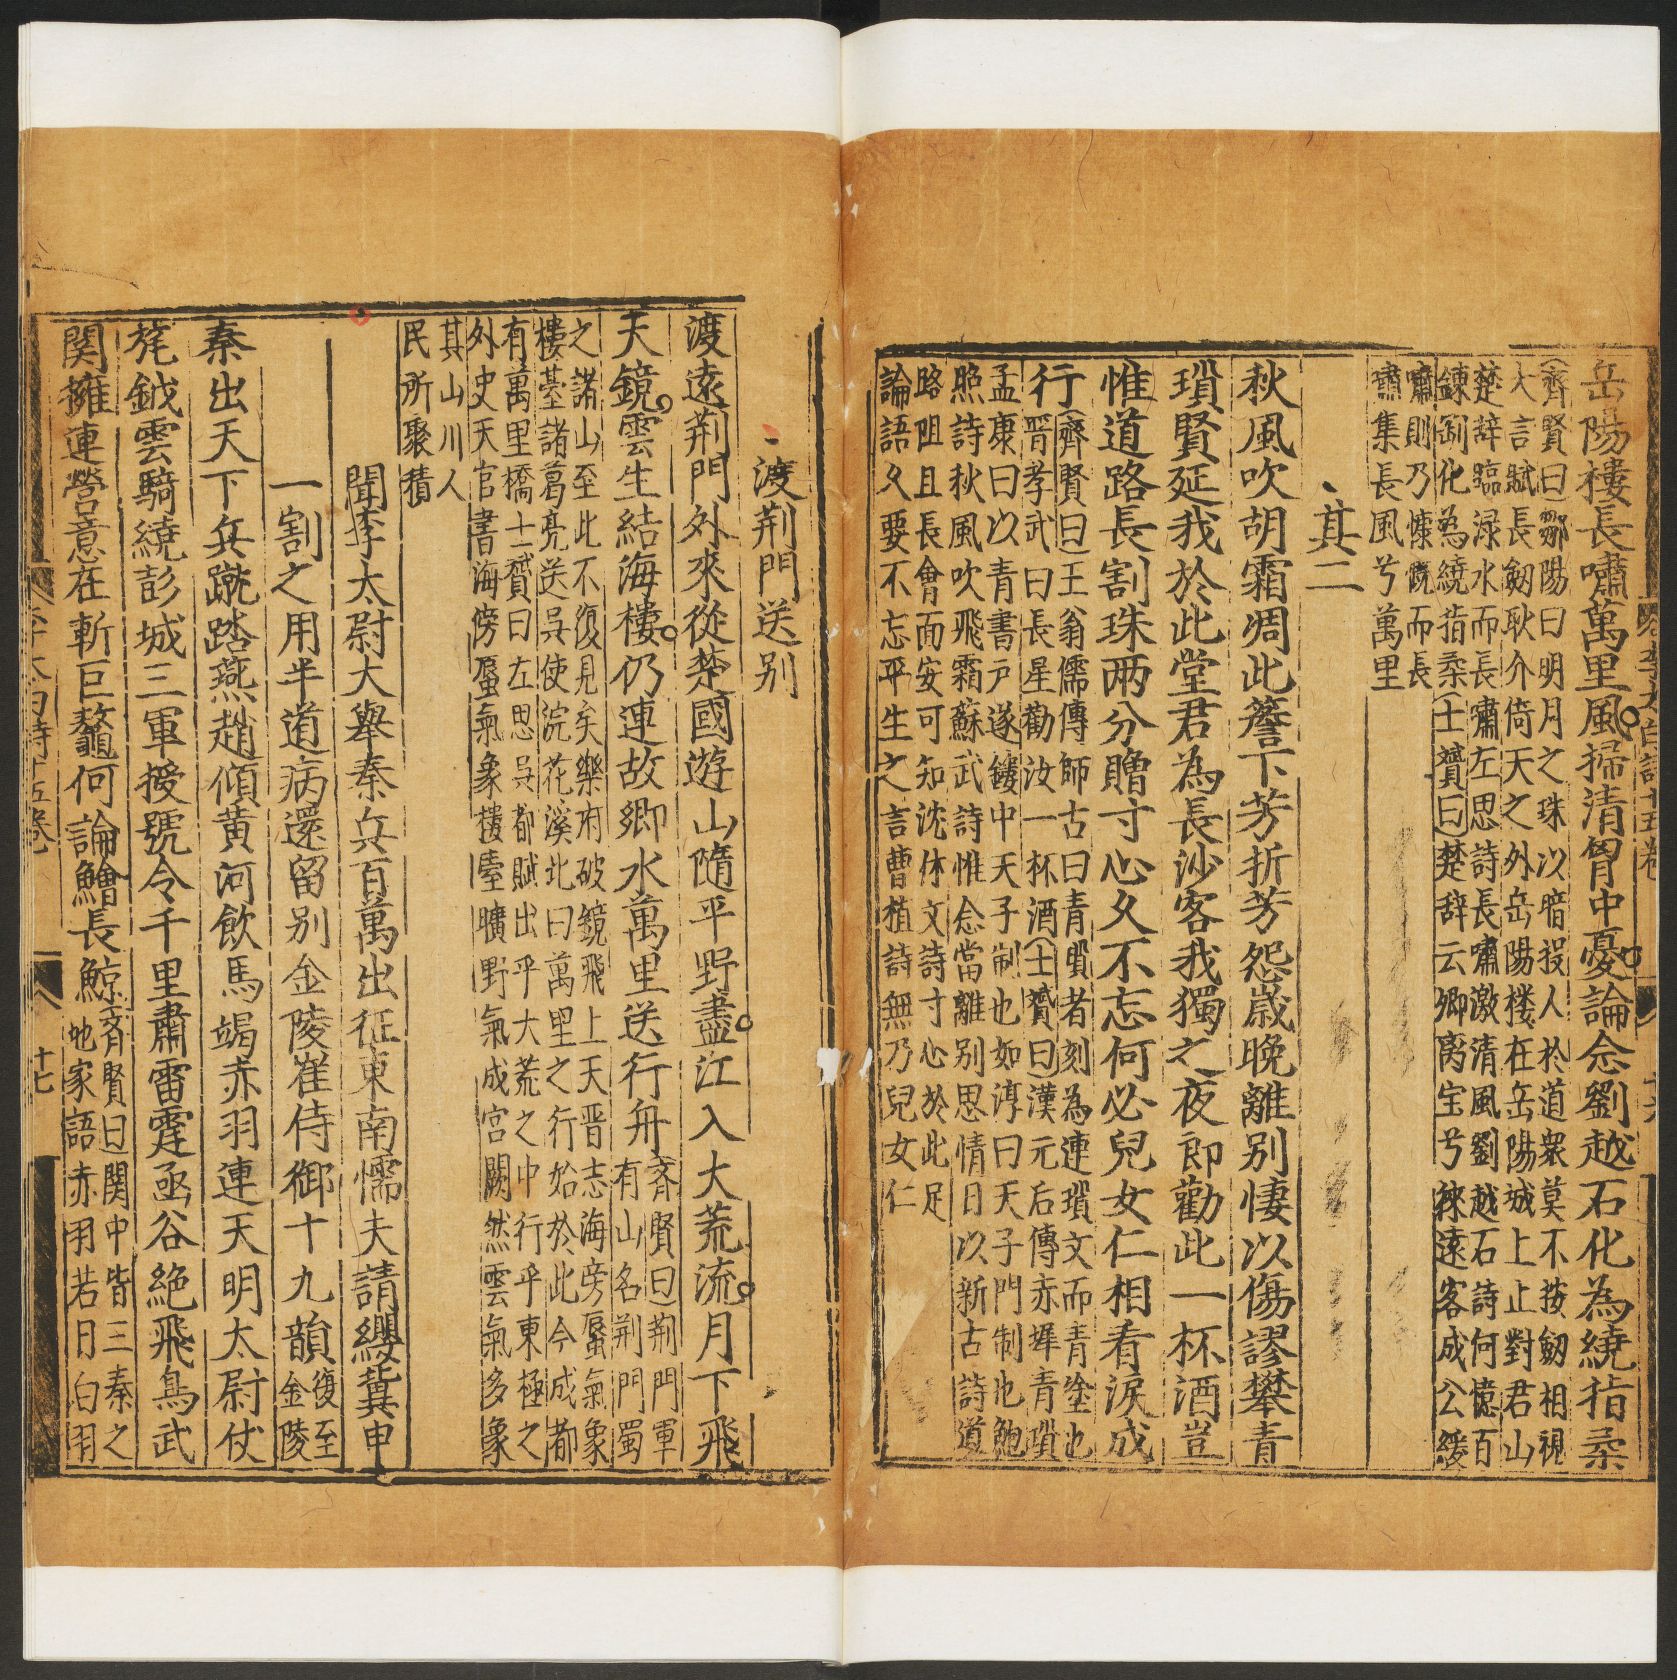 岳陽樓長嘯萬里風掃清胷中憂論念劉越石化為繞指柔
(齊賢曰)鄒陽曰明月之珠以暗投人於道衆莫不按劒相視
大言賦長劒耿介倚天之外岳陽楼在岳陽城上止對君山
楚辞臨渌水而長嘯左思詩長嘯激清風劉越石詩何憶百
鍊剛化為繞指柔(士贇曰)楚辞云卿离宝兮徠遠客成公綏
嘯則乃慷慨而長
嘯集長風兮萬里
其二
秋風吹胡霜凋此簷下芳折芳怨歲晚離别悽以傷謬攀青
瑣賢延我於此堂君為長沙客我獨之夜郎勸此一杯酒豈
惟道路長割珠兩分贈寸心久不忘何必兒女仁相看淚成
行(齊賢曰)王翁儒傳師古曰青瑣者刻為連瑣文而青塗也
晋孝武曰長星勸汝一杯酒(士贇曰)漢元后傳赤墀青瑣
孟康曰以青書戸邃鏤中天子制也如淳曰天子門制也鮑
照詩秋風吹飛霜蘇武詩惟念當離别思情日以新古詩道
路阻且長會面安可知沈休文詩寸心於此足
論語久要不忘平生之言曹植詩無乃兒女仁
渡荆門送别
渡遠荆門外來從楚國遊山隨平野盡江入大荒流月下飛
天鏡雲生結海樓仍連故鄉水萬里送行舟(齊賢曰)荆門軍
有山名荆門蜀
之諸山至此不復見矣樂府破鏡飛上天晋志海旁蜃氣象
樓䑓諸葛亮送吴使浣花溪北曰萬里之行始於此今成都
有萬里橋士贇曰左思吴都賦出乎大荒之中行乎東極之
外史天官書海傍蜃氣象樓䑓曠野氣成宫闕然雲氣多象
其山川人
民所聚積
聞李太尉大舉秦兵百萬出征東南懦夫請纓冀申
一割之用半道病還留别金陵崔侍御十九韻復至
金陵
秦出天下兵蹴踏燕趙傾黄河飲馬竭赤羽連天明太尉仗
旄鉞雲騎繞彭城三軍授號令千里肅雷霆亟谷絶飛鳥武
関擁連營意在斬巨鼇何論鱠長鯨(齊賢曰)関中皆三秦之
地家語赤羽若日白羽
李太白詩十五卷
十七